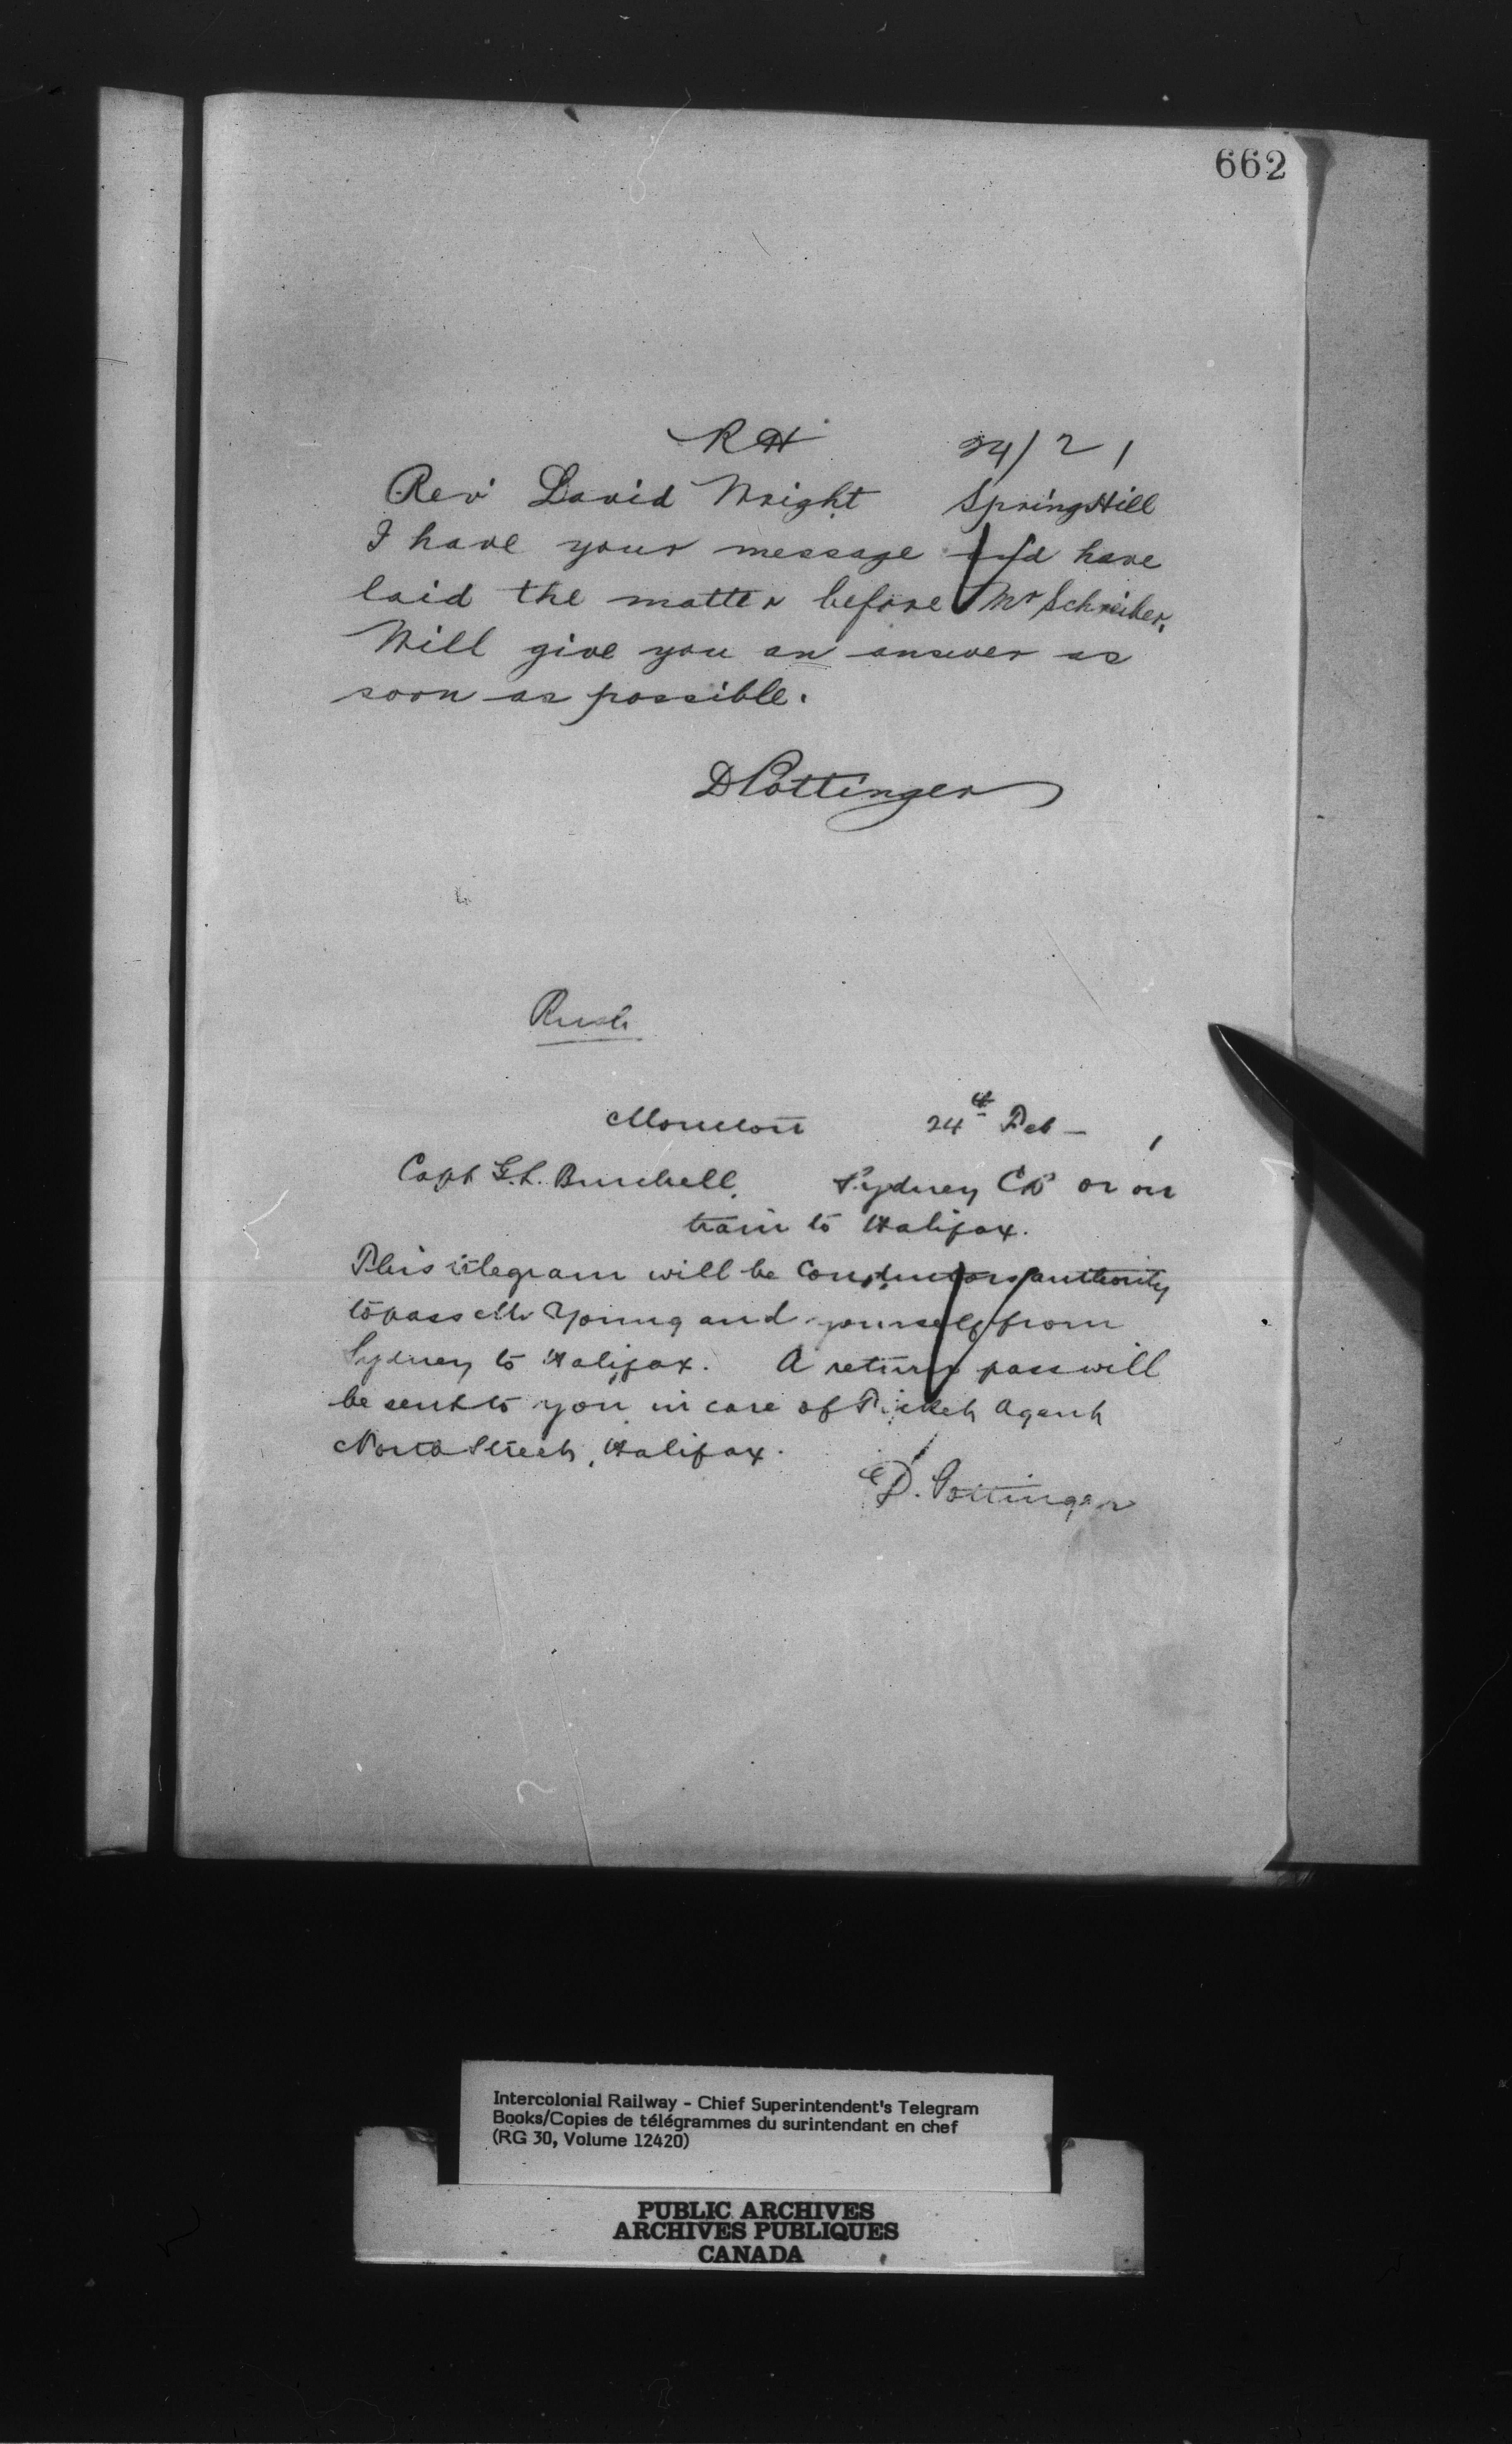 662
RH 24/2 1
Rev David Wright SpringHill
I have your message and have
laid the matter before Mr Schreiber.
Will give you an answer as
soon as possible.
D Pottinger
Rush
Moncton 24th Feb - 1
Capt G.L. Burchell, Sydney CB or on
train to Halifax.
This telegram will be Conductors authority
to pass Mr Young and yourself from
Sydney to Halifax. A return pass will
be sent to you in care of Ticket Agent
North Street, Halifax.
D. Pottinger
Intercolonial Railway - Chief Superintendent's Telegram
Books/Copies de télégrammes du surintendant en chef
(RG 30, Volume 12420)
PUBLIC ARCHIVES
ARCHIVES PUBLIQUES
CANADA